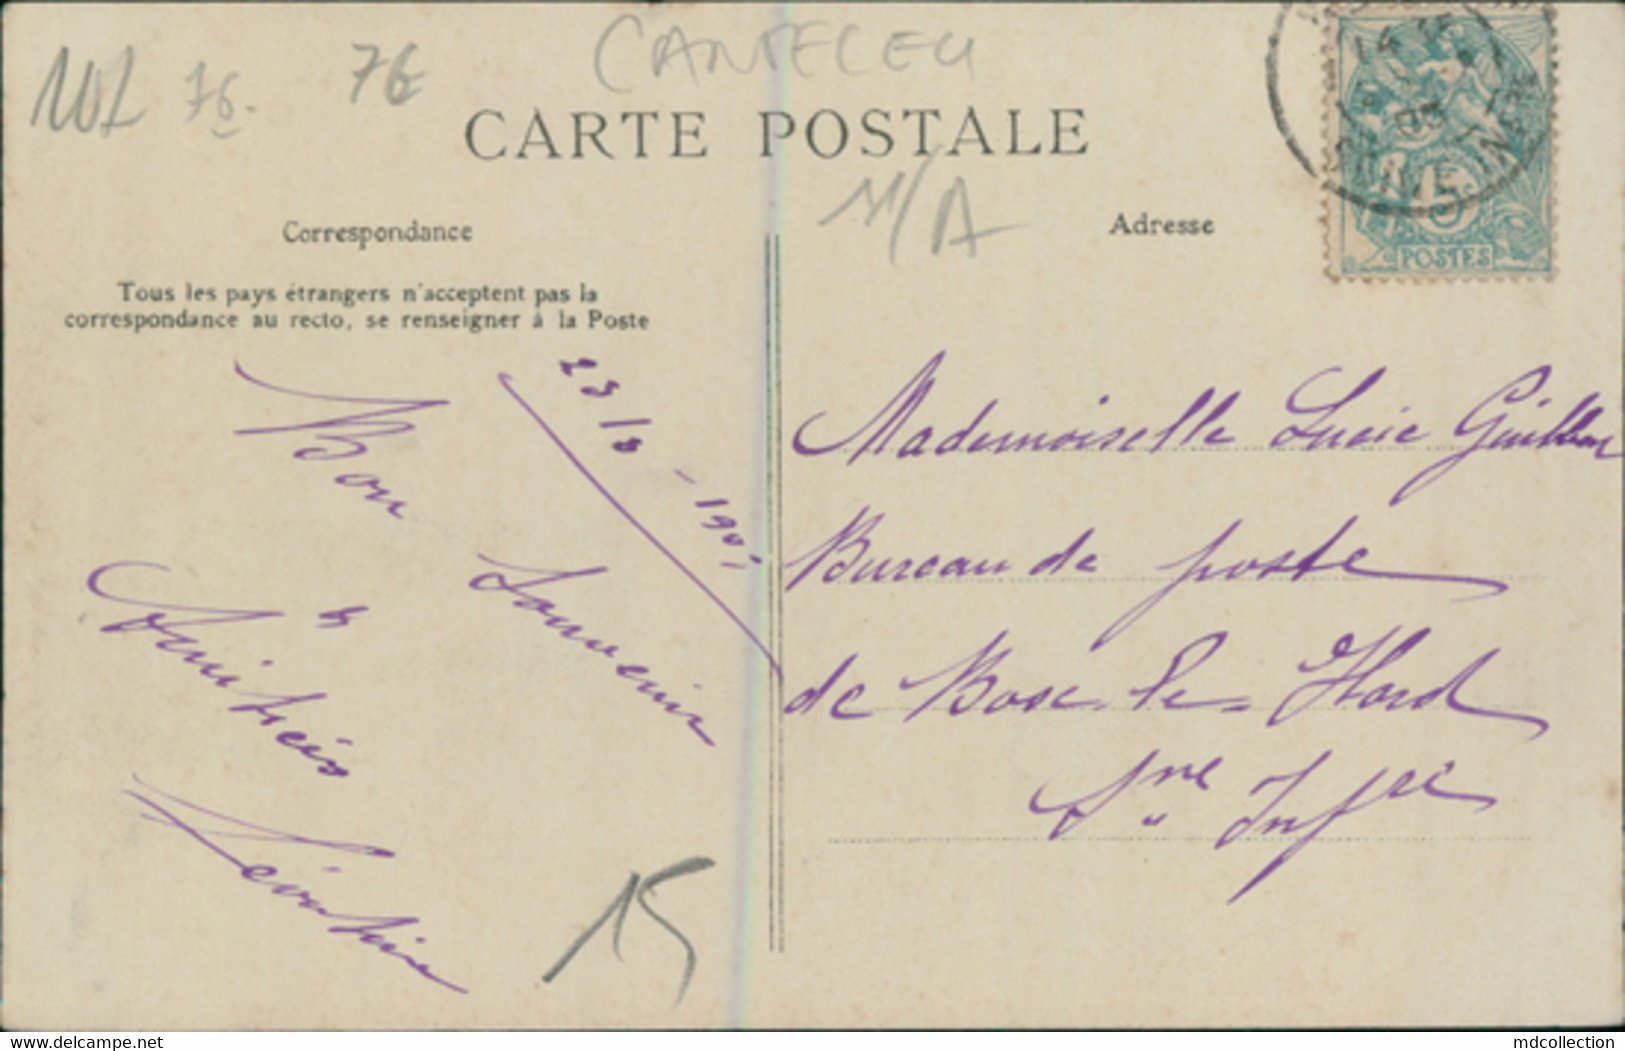 76
76
CANTELEU
CARTE POSTALE
M/A
Correspondance
Adresse
Tous les pays étrangers n'acceptent pas la
correspondance au recto, se renseigner à la Poste
POSTES
5c
SEINE INFRE
Bon
Souvenir
&
Amitiés
Léontine
15
Mademoiselle Lucie
Bureau de poste
de Bosc-le-Hard
Sne Infre
delcampe.net
mdcollection